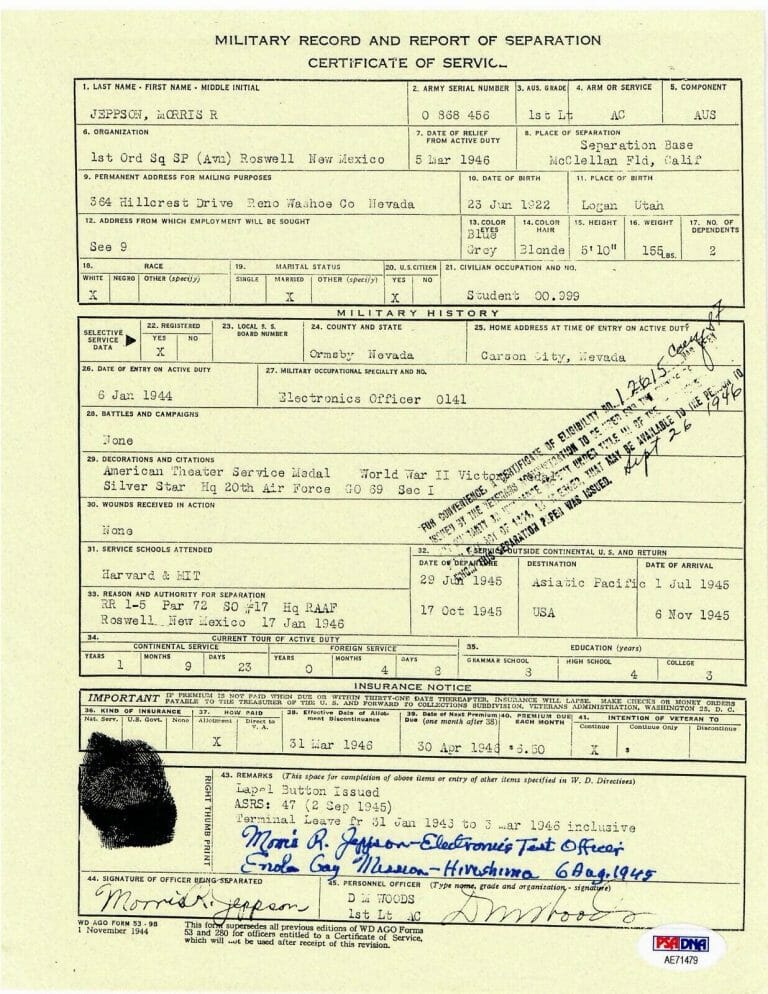 MILITARY RECORD AND REPORT OF SEPARATION
CERTIFICATE OF SERVIC
1. LAST NAME - FIRST NAME - MIDDLE INITIAL
JEPPSON, MORRIS R
2. ARMY SERIAL NUMBER
O 868 456
3. AUS. GRADE
1st Lt
4. ARM OR SERVICE
AC
5. COMPONENT
AUS
6. ORGANIZATION
1st Ord Sq SP (Avn) Roswell New Mexico
7. DATE OF RELIEF FROM ACTIVE DUTY
5 Mar 1946
8. PLACE OF SEPARATION
Separation Base
McClellan Fld, Calif
9. PERMANENT ADDRESS FOR MAILING PURPOSES
364 Hillcrest Drive Reno Washoe Co Nevada
10. DATE OF BIRTH
23 Jun 1922
11. PLACE OF BIRTH
Logan Utah
12. ADDRESS FROM WHICH EMPLOYMENT WILL BE SOUGHT
See 9
13. COLOR EYES
Blue
Grey
14. COLOR HAIR
Blonde
15. HEIGHT
5'10"
16. WEIGHT
155 LBS.
17. NO. OF DEPENDENTS
2
18. RACE
WHITE NEGRO OTHER (specify)
X
19. MARITAL STATUS
SINGLE MARRIED OTHER (specify)
X
20. U.S. CITIZEN
YES NO
X
21. CIVILIAN OCCUPATION AND NO.
Student 00.999
MILITARY HISTORY
SELECTIVE SERVICE DATA
22. REGISTERED
YES NO
X
23. LOCAL S. S. BOARD NUMBER
24. COUNTY AND STATE
Ormsby Nevada
25. HOME ADDRESS AT TIME OF ENTRY ON ACTIVE DUTY
Carson City, Nevada
26. DATE OF ENTRY ON ACTIVE DUTY
6 Jan 1944
27. MILITARY OCCUPATIONAL SPECIALTY AND NO.
Electronics Officer 0141
28. BATTLES AND CAMPAIGNS
None
29. DECORATIONS AND CITATIONS
American Theater Service Medal World War II
Silver Star Hq 20th Air Force GO 69 Sec I
FOR CONVENIENCE, A CERTIFICATE OF ELIGIBILITY NO.
ISSUED BY THE VETERANS ADMINISTRATION TO BE USED FOR THE
THAT MAY BE AVAILABLE TO THE PERSON TO
WHOM THIS SEPARATION PAPER WAS ISSUED.
Sept 26 1946
30. WOUNDS RECEIVED IN ACTION
None
31. SERVICE SCHOOLS ATTENDED
Harvard & MIT
32. SERVICE OUTSIDE CONTINENTAL U. S. AND RETURN
DATE OF DEPARTURE DESTINATION DATE OF ARRIVAL
29 Jun 1945 Asiatic Pacific 1 Jul 1945
17 Oct 1945 USA 6 Nov 1945
33. REASON AND AUTHORITY FOR SEPARATION
RR 1-5 Par 72 SO #17 Hq RAAF
Roswell New Mexico 17 Jan 1946
34. CURRENT TOUR OF ACTIVE DUTY
CONTINENTAL SERVICE FOREIGN SERVICE
YEARS MONTHS DAYS YEARS MONTHS DAYS
1 9 23 0 4 8
35. EDUCATION (years)
GRAMMAR SCHOOL HIGH SCHOOL COLLEGE
8 4 3
INSURANCE NOTICE
IMPORTANT IF PREMIUM IS NOT PAID WHEN DUE OR WITHIN THIRTY-ONE DAYS THEREAFTER, INSURANCE WILL LAPSE. MAKE CHECKS OR MONEY ORDERS
PAYABLE TO THE TREASURER OF THE U. S. AND FORWARD TO COLLECTIONS SUBDIVISION, VETERANS ADMINISTRATION, WASHINGTON 25, D. C.
36. KIND OF INSURANCE
Nat. Serv. U.S. Govt. None
37. HOW PAID
Allotment Direct to V. A.
X
38. Effective Date of Allotment Discontinuance
31 Mar 1946
39. Date of Next Premium Due (one month after 38)
30 Apr 1946
40. PREMIUM DUE EACH MONTH
$6.50
41. INTENTION OF VETERAN TO
Continue Continue Only Discontinue
X $
RIGHT THUMB PRINT
43. REMARKS (This space for completion of above items or entry of other items specified in W. D. Directives)
Lapel Button Issued
ASRS: 47 (2 Sep 1945)
Terminal Leave fr 31 Jan 1946 to 5 Mar 1946 inclusive
Morris R. Jeppson - Electronics Test Officer
Enola Gay Mission - Hiroshima 6 Aug. 1945
44. SIGNATURE OF OFFICER BEING SEPARATED
Morris R. Jeppson
45. PERSONNEL OFFICER (Type name, grade and organization - signature)
D M WOODS
1st Lt AC
D M Woods
WD AGO FORM 53-98
1 November 1944
This form supersedes all previous editions of WD AGO Forms
53 and 280 for officers entitled to a Certificate of Service,
which will not be used after receipt of this revision.
PSA DNA
AE71479